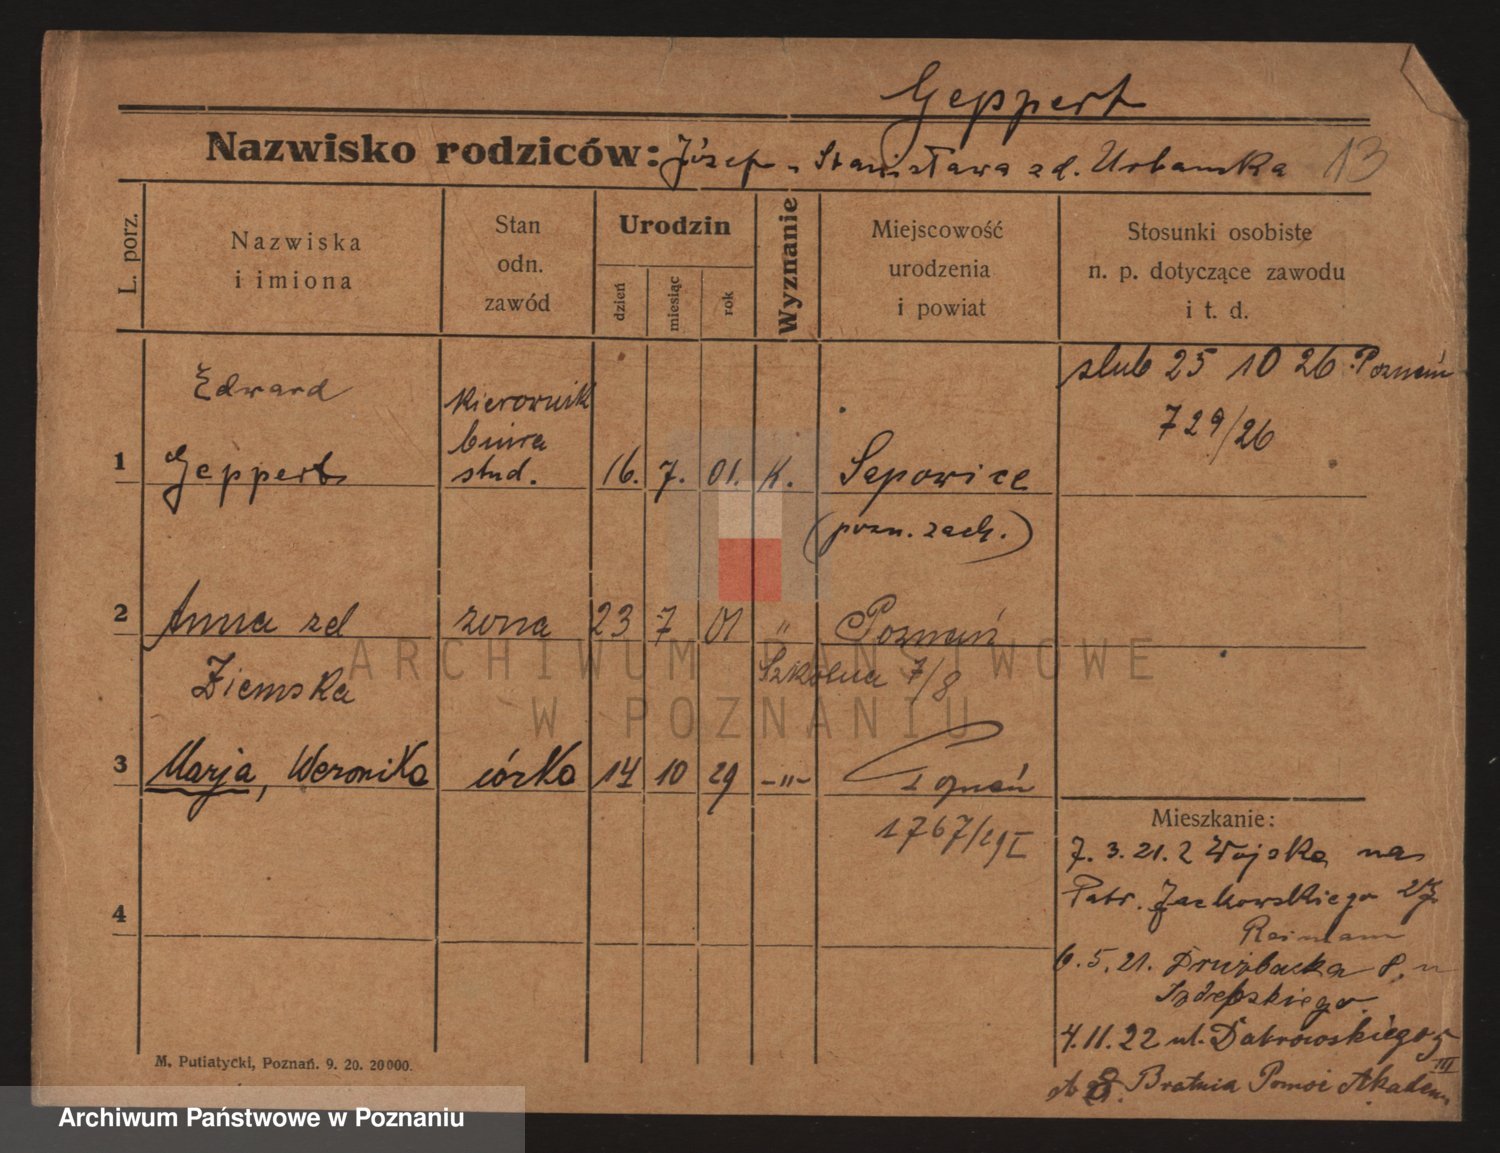 Geppert
Nazwisko rodziców: Józef - Stanisława zd. Urbanska 13
L. porz.
Nazwiska
i imiona
Stan
odn.
zawód
Urodzin
dzień
miesiąc
rok
Wyznanie
Miejscowość
urodzenia
i powiat
Stosunki osobiste
n. p. dotyczące zawodu
i t. d.
slub 25 10 26 Poznań
729/26
1 Edward
Geppert
kierownik
biura
stud.
16. 7. 01. k. Sepowice
(pozn. zach.)
2 Anna zd
Ziemska
zona 23 7 01 " Poznań
Szkolna 7/8
3 Marja, Weronika córka 14 10 29 -"- Poznań
1767/29 I
4
Mieszkanie:
7. 3. 21. z Wojska na
Patr. Jackowskiego 27
Reimann
6. 5. 21. Druzbacka 8.
4. 11. 22 ul. Dabrowskiego 5
III
8. Bratnia Pomoc Akadem
M. Putiatycki, Poznań. 9. 20. 20000.
ARCHIWUM PAŃSTWOWE
W POZNANIU
Archiwum Państwowe w Poznaniu